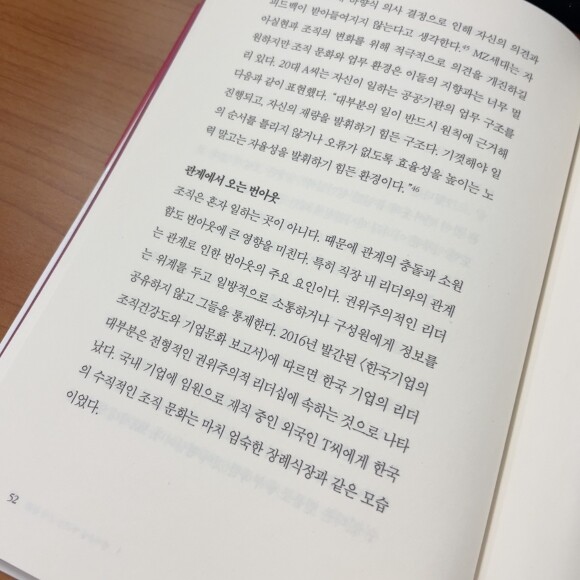 하향식 의사 결정으로 인해 자신의 의견과
피드백이 받아들여지지 않는다고 생각한다.⁴⁵ MZ세대는 자
아실현과 조직의 변화를 위해 적극적으로 의견을 개진하길
원하지만 조직 문화와 업무 환경은 이들의 지향과는 너무 멀
리 있다. 20대 A씨는 자신이 일하는 공공기관의 업무 구조를
다음과 같이 표현했다. "대부분의 일이 반드시 원칙에 근거해
진행되고, 자신의 재량을 발휘하기 힘든 구조다. 기껏해야 일
의 순서를 틀리지 않거나 오류가 없도록 효율성을 높이는 노
력 말고는 자율성을 발휘하기 힘든 환경이다."⁴⁶
관계에서 오는 번아웃
조직은 혼자 일하는 곳이 아니다. 때문에 관계의 충돌과 소원
함도 번아웃에 큰 영향을 미친다. 특히 직장 내 리더와의 관계
는 관계로 인한 번아웃의 주요 요인이다. 권위주의적인 리더
는 위계를 두고 일방적으로 소통하거나 구성원에게 정보를
공유하지 않고 그들을 통제한다. 2016년 발간된 〈한국기업의
조직건강도와 기업문화 보고서〉에 따르면 한국 기업의 리더
대부분은 전형적인 권위주의적 리더십에 속하는 것으로 나타
났다. 국내 기업에 임원으로 재직 중인 외국인 T씨에게 한국
의 수직적인 조직 문화는 마치 엄숙한 장례식장과 같은 모습
이었다.
52